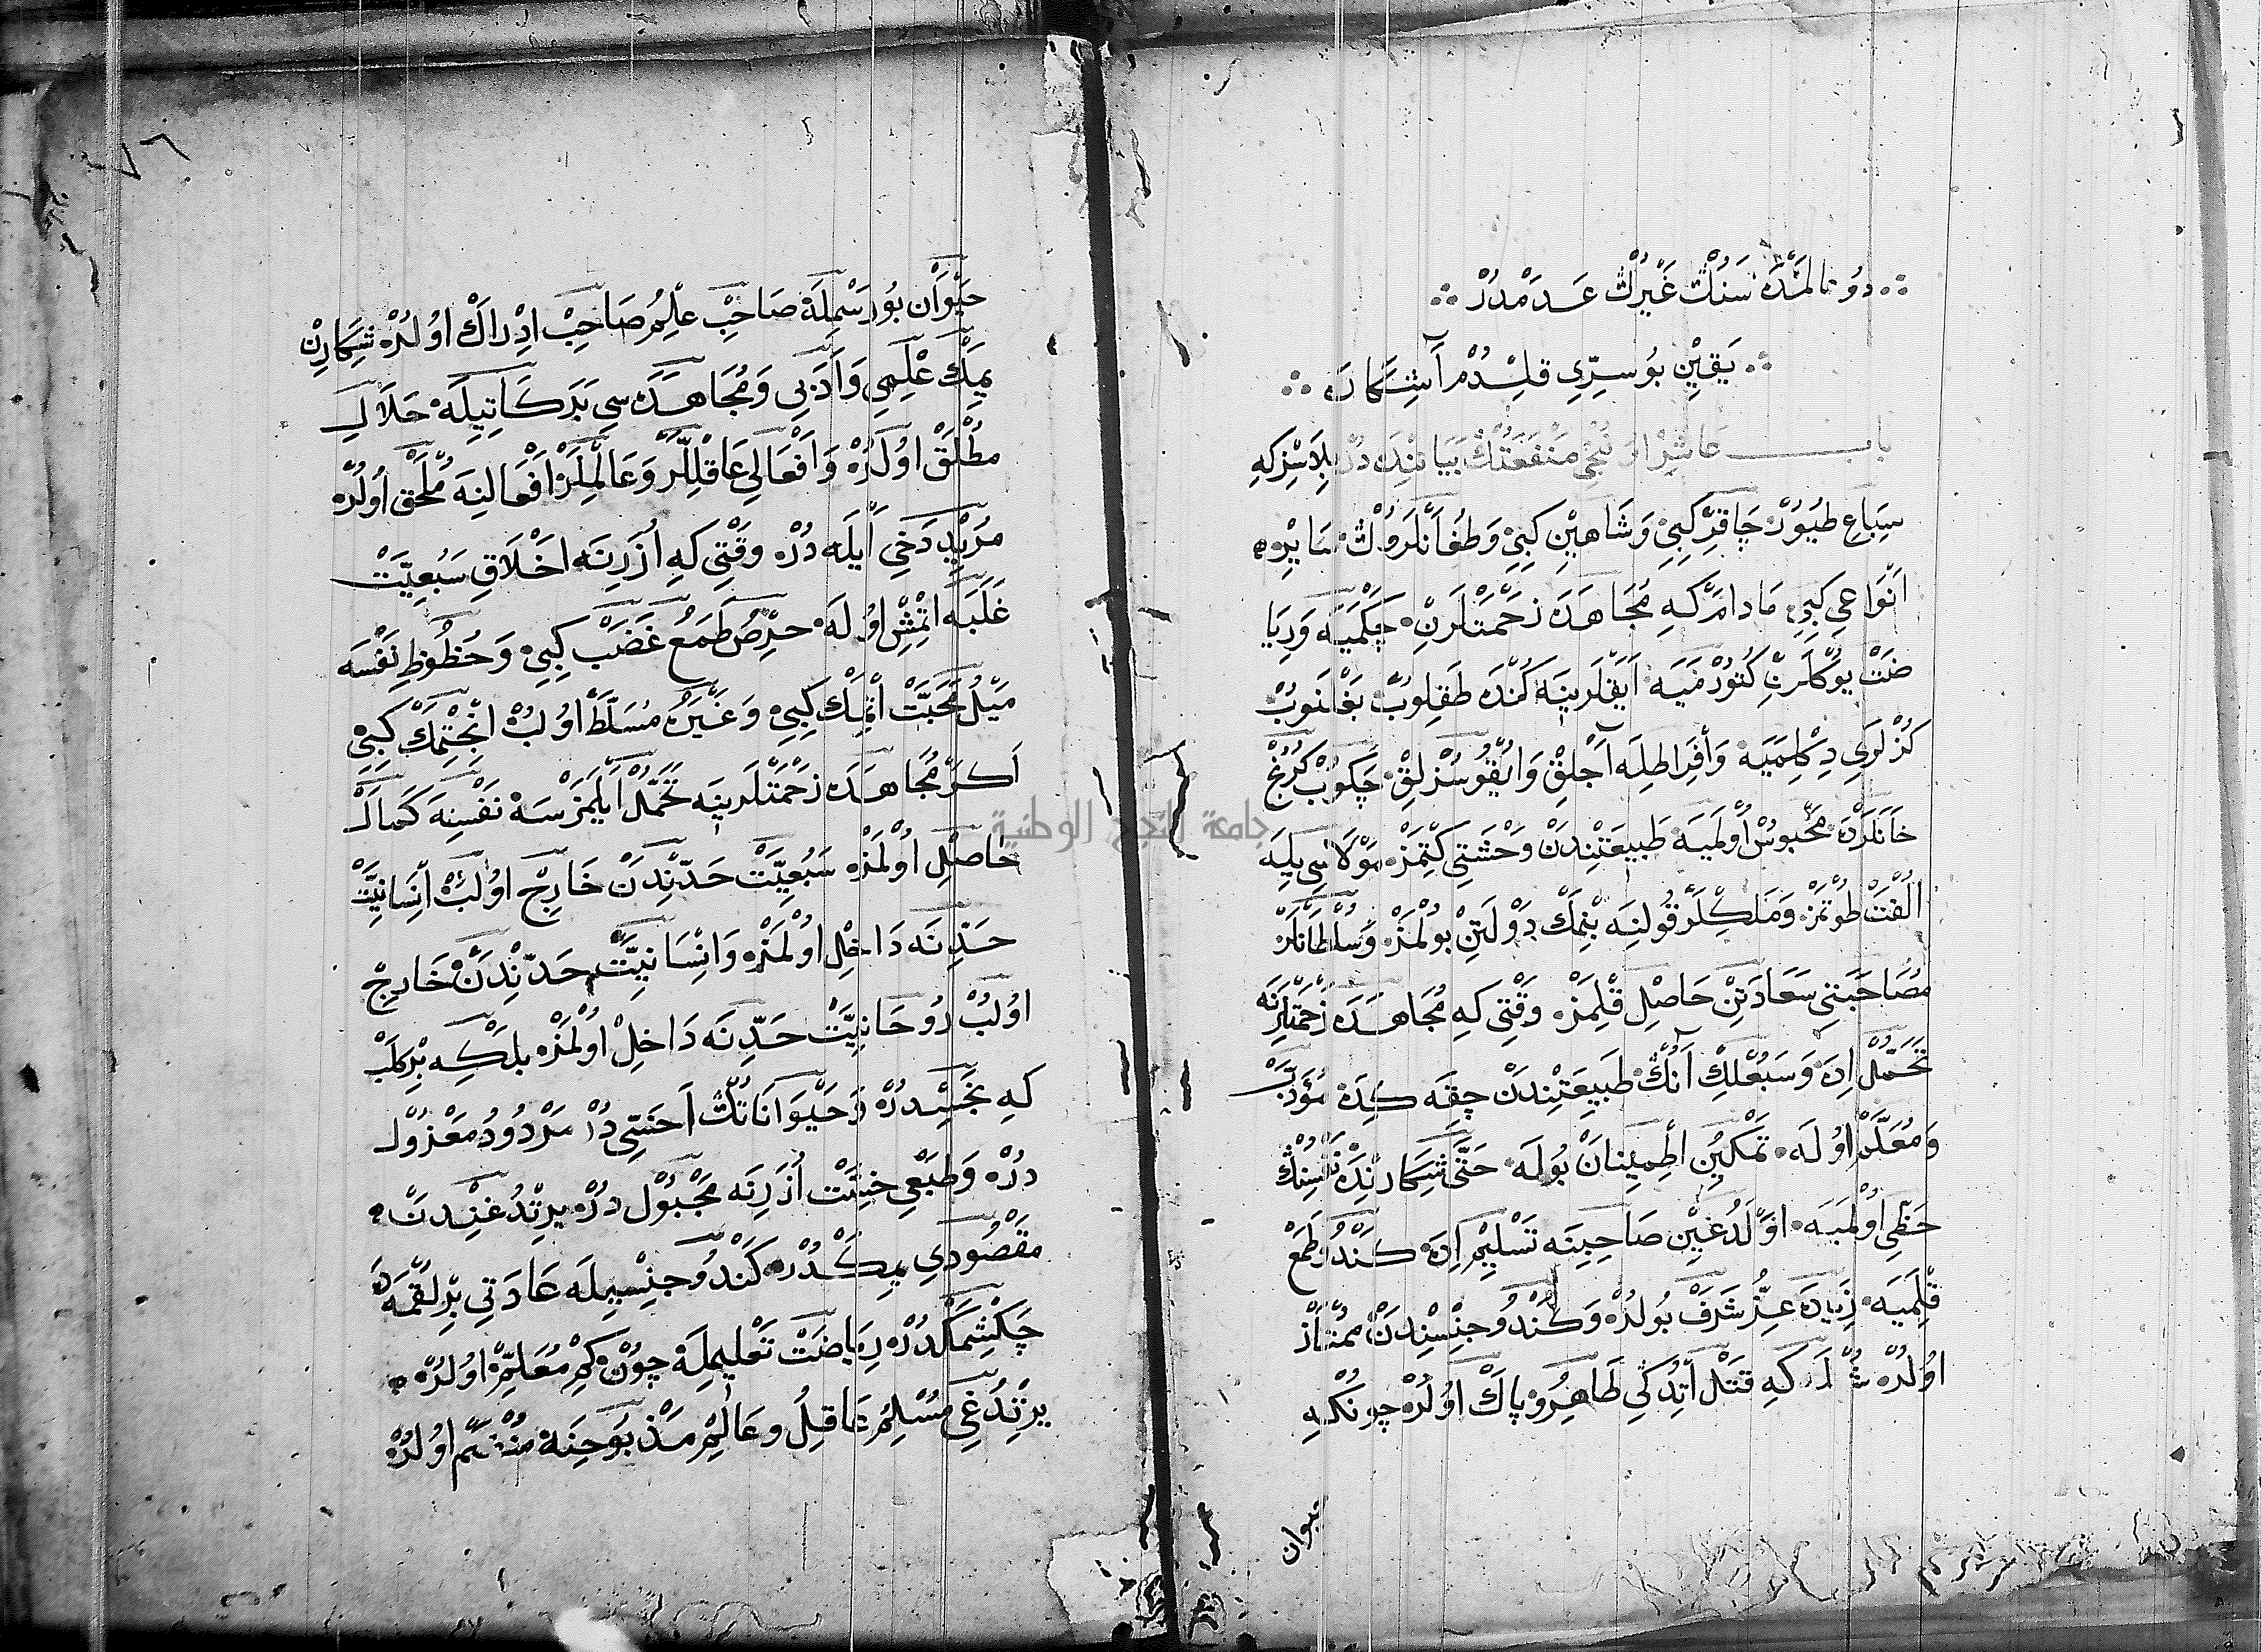 دُونالمَدَه سَنُكْ غَيْرُكْ عَدَمْدُرْ
يَقِيْنْ بُو سِرِّي قِلِدُمْ آشِكَارَه
باب عَاشِرْ اونُنْجِي مَنْفَعَتُكْ بَيَانِنْدَه دُرْ بِلَاسِزْكِه
سِبَاعِ طُيُورْ چَاقِرْ كِبِي وَشَاهِيْنِ كِبِي وَطُغَانْلَرُوكْ سَايِرْ
اَنْوَاعِي كِبِي مَادَامْ كِه مُجَاهَدَه زَحْمَتْلَرِنْ چَكْمَيَه وَرِيَا
ضَتْ يُوكْلَرِنْ كُتُورْمَيَه اَيَقْلَرِينَه كُنْدَه طَقِلُوبْ بَغْلَنُوبْ
كُزْلَرِي دِكِلْمَيَه وَاَفْرَاطِلَه آجْلِقْ وَاُيْقُوسُزْلِقْ چَكُوبْ كُرُنْجْ
خَانَلَرْدَه مَحْبُوسْ اُولْمَيَه طَبِيعَتِنْدَنْ وَحْشَتِي كِتْمَزْ مَوْلَاسِي يِلَه
اُلْفَتْ طُوتْمَزْ وَمَلِكْلَرْ قُولِنَه بِنْمَكْ دَوْلَتِنْ بُولْمَزْ وَسُلْطَانْلَرْ
مُصَاحَبَتِي سَعَادَتِنْ حَاصِلْ قِلْمَزْ وَقْتِي كِه مُجَاهَدَه زَحْمَتْلَرِنَه
تَحَمُّلْ اِدَه وَسَبُعْلِكْ آنُكْ طَبِيعَتِنْدَنْ چِقَه كِدَه مُؤَدَّبْ
وَمُعَلَّمْ اُولَه تَمْكِينِ اُطْمِينَانْ بُولَه حَتَّى شِكَارِنْدَه نَفْسِنُكْ
حَظِّي اُولْمَيَه اَوْلَدُغِيْنْ صَاحِبِنَه تَسْلِيْمْ اِدَه كَنْدُو طَمَعْ
قِلْمَيَه زِيَادَه عِزُّ شَرَفْ بُولُرْ وَكَنْدُو جِنْسِنْدَنْ مُمْتَازْ
اُولُرْ شُولْ كِه قَتْلْ اَتْدُكِي طَاهِرُ وپَاكْ اُولُرْ چُونْكِه
حيوان
حَيْوَانْ بُو رَسْمِلَه صَاحِبْ عِلْمُ صَاحِبْ اِدْرَاكْ اُولُرْ شِكَارِنْ
يِمَكْ عِلْمِي وَاَدَبِي وَمُجَاهَدَه سِي بَرَكَاتِيلَه حَلَالِ
مُطْلَقْ اُولُرْ وَاَفْعَالِي عَاقِلْلَرْ وَعَالِمْلَرْ اَفْعَالِنَه مُلْحَقْ اُولُرْ
مُرِيْدْ دَخِي اَيْلَه دُرْ وَقْتِي كِه اُزَرِنَه اَخْلَاقِ سَبُعِيَّتْ
غَلَبَه اِتْمِشْ اُولَه حِرْصُ طَمَعُ غَضَبْ كِبِي وَحُظُوظِ نَفْسَه
مَيْلُ مَحَبَّتْ اَتْمِكْ كِبِي وَغَيْرَه مُسَلَّطْ اُولُبْ اِنْجِتْمَكْ كِبِي
اَكَرْ مُجَاهَدَه زَحْمَتْلَرِينَه تَحَمُّلْ اَيْلَمَزْسَه نَفْسِنَه كَمَالْ
حَاصِلْ اُولْمَزْ سَبُعِيَّتْ حَدِّنْدَنْ خَارِجْ اُولُبْ اِنْسَانِيَّتْ
حَدِّنَه دَاخِلْ اُولْمَزْ وَاِنْسَانِيَّتْ حَدِّنْدَنْ خَارِجْ
اُولُبْ رُوحَانِيَّتْ حَدِّنَه دَاخِلْ اُولْمَزْ بَلْكِه بِرْ كَلْبْ
كِه نَجِسْدُرْ وَحَيْوَانَاتُكْ اَخَسِّي دُرْ مَرْدُودُ مَعْزُولْ
دُرْ وَطَبْعِي خِسَّتْ اُزَرِنَه مَجْبُولْ دُرْ يِرْتْدُغِنْدَنْ
مَقْصُودِي يِمَكْدُرْ كَنْدُو جِنْسِيلَه عَادَتِي بِرْ لُقْمَه دَه
چَكِشْمَكْدُرْ رِيَاضَتْ تَعْلِيمِلَه چُونْ كِمْ مُعَلَّمْ اُولُرْ
يِرْتْدُغِي مُسْلِمُ عَاقِلُ وعَالِمْ مَذْبُوحِنَه مُنْضَمّ اُولُرْ